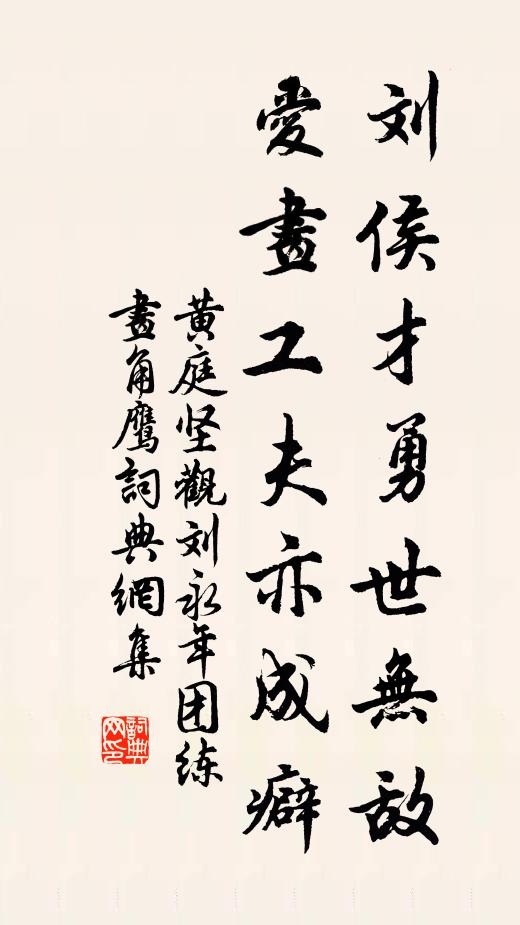 刘侯才勇世無敌
愛畫工夫亦成癖
黄庭坚觀刘永年团练
畫角鹰詞典網集
詞典网印